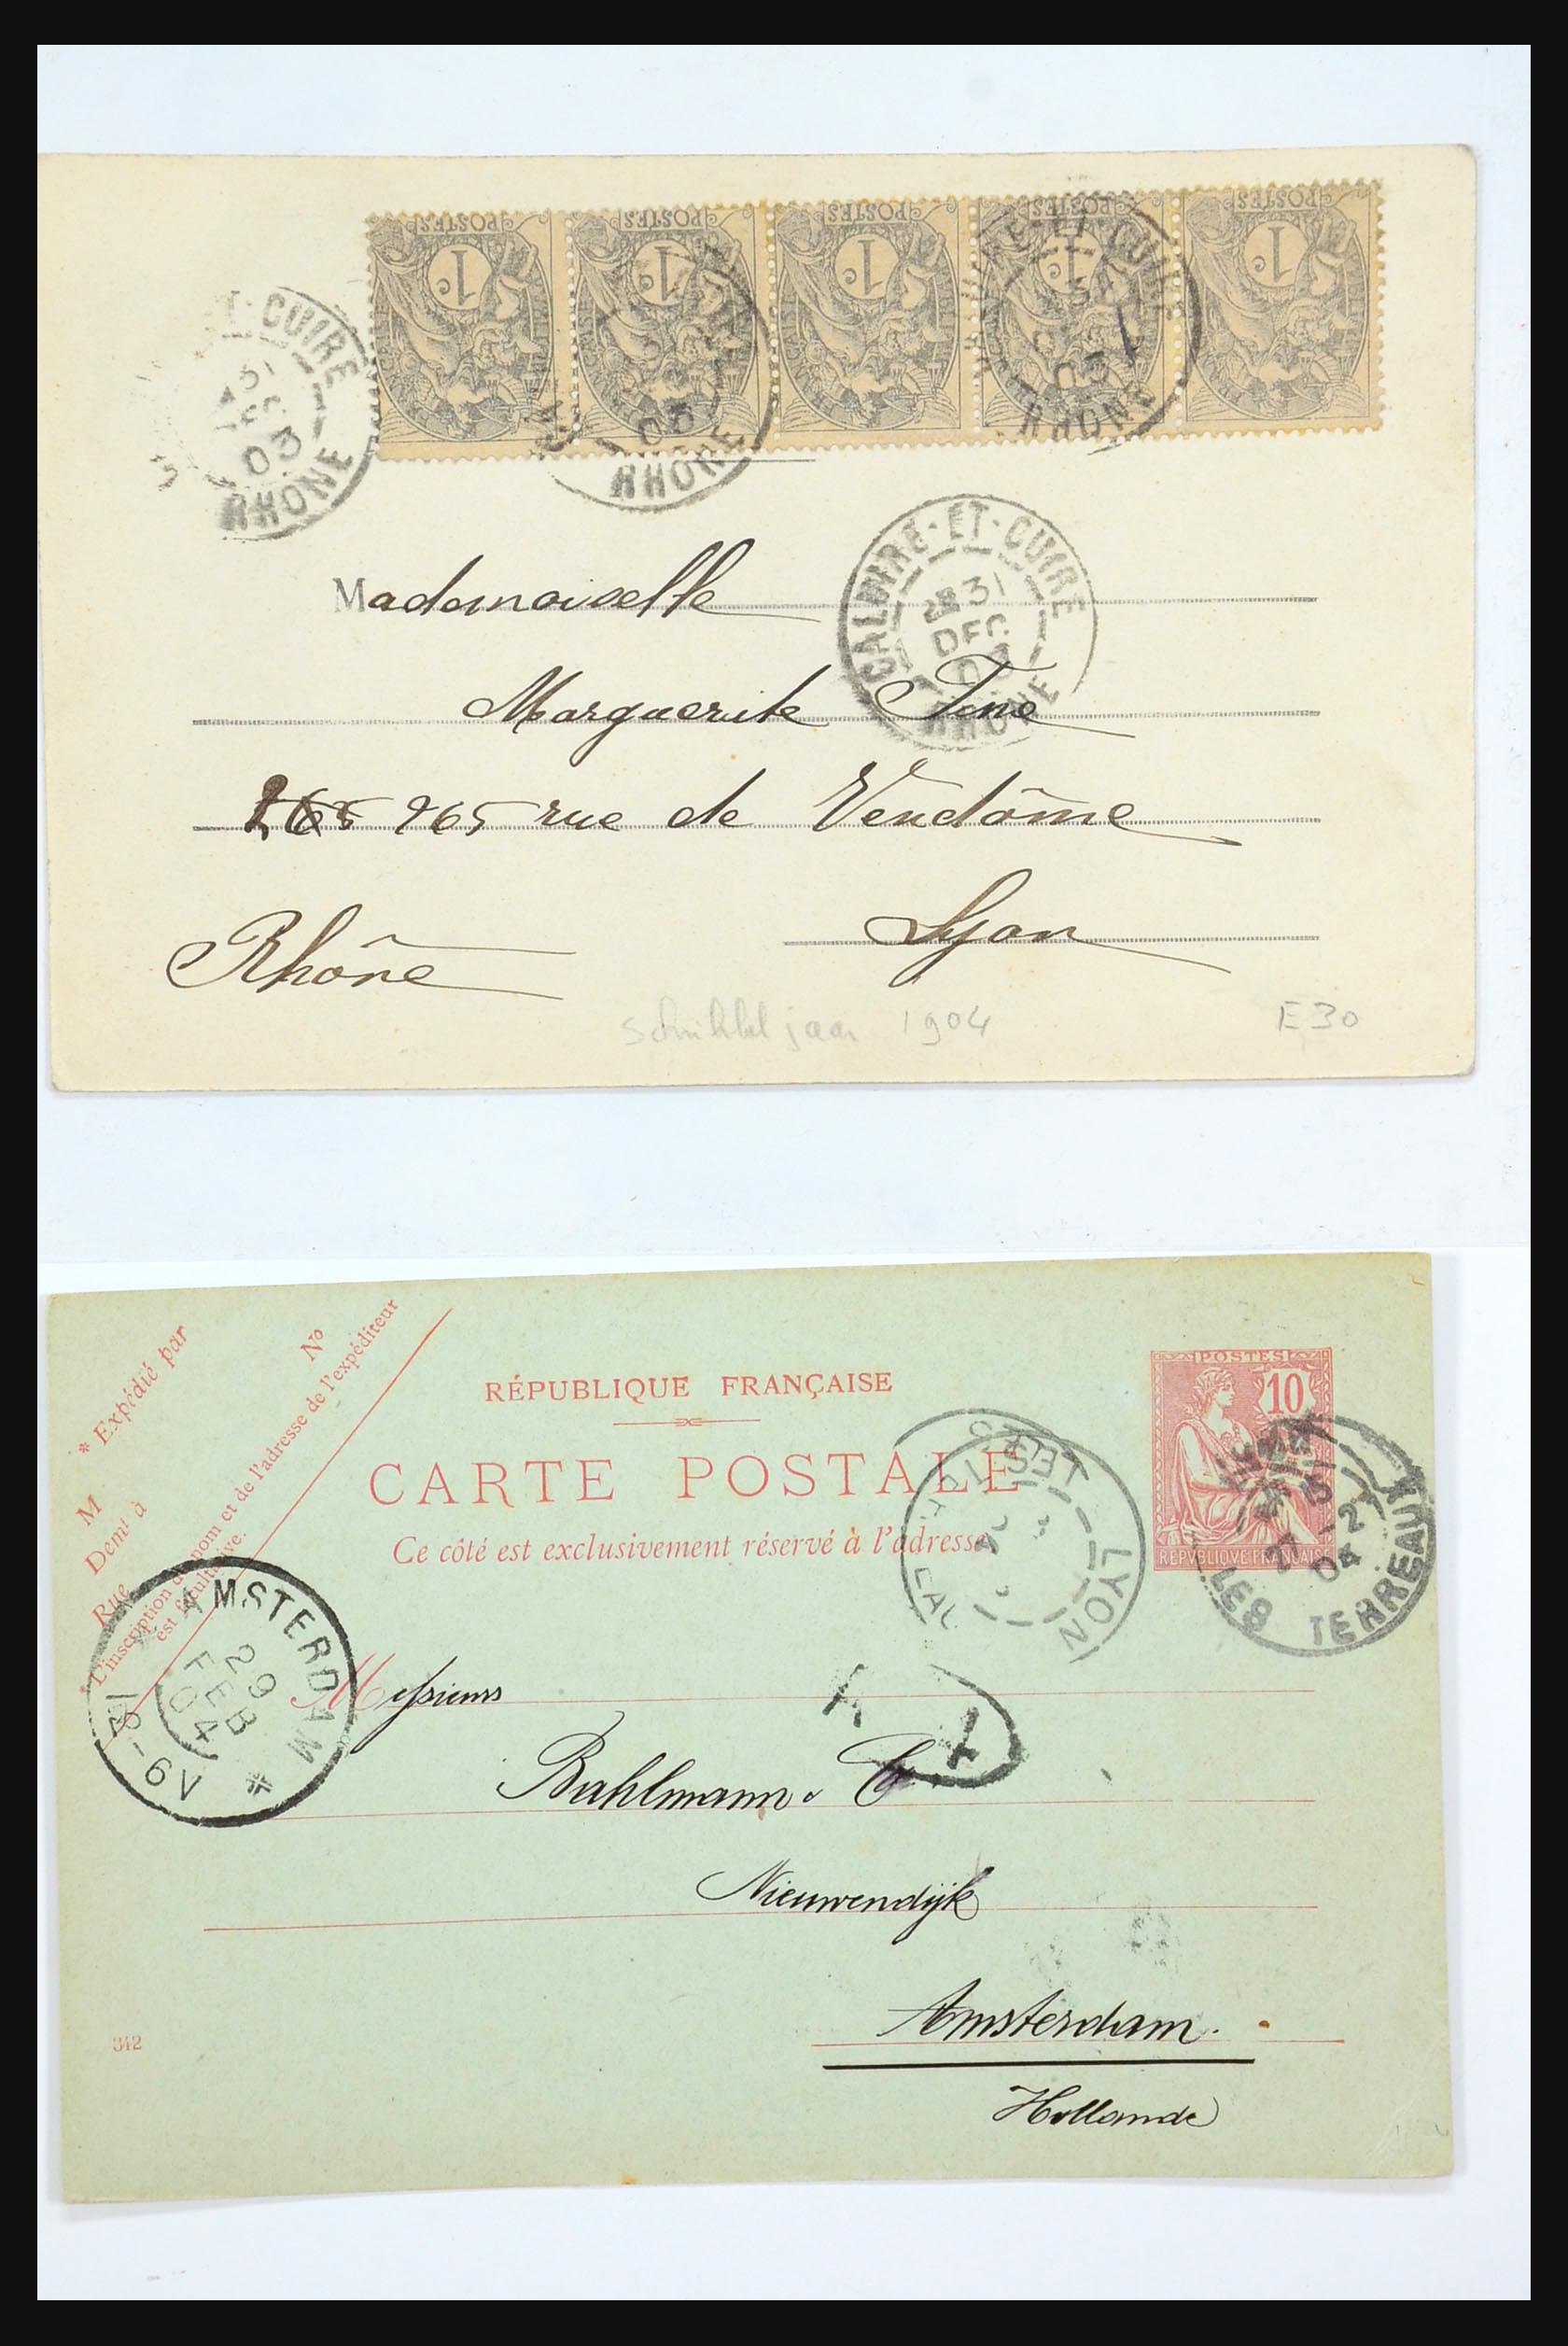 POSTES POSTES POSTES POSTES POSTES
1c 1c 1c 1c 1c
ET·CUIRE
31
03
RHONE
03
RHONE
ET·CUIRE
03
RHONE
CALUIRE·ET·CUIRE
31
DEC
03
RHONE
Mademoiselle
Marguerite
265 rue de Vendôme
Lyon
Rhône
Schrikkeljaar 1904
E 30
* Expédié par
M
Nº
Demt à
Rue
*L'inscription du nom et de l'adresse de l'expéditeur
est facultative.
RÉPUBLIQUE FRANÇAISE
CARTE POSTALE
Ce côté est exclusivement réservé à l'adresse
POSTES
10
REPVBLIQVE FRANÇAISE
LYON
LES TERREAUX
27
04
LYON
LES
AMSTERDAM
29
FEB
04
12-6V
*
Messieurs
Bahlmann & Co
Nieuwendijk
Amsterdam.
Hollande
342